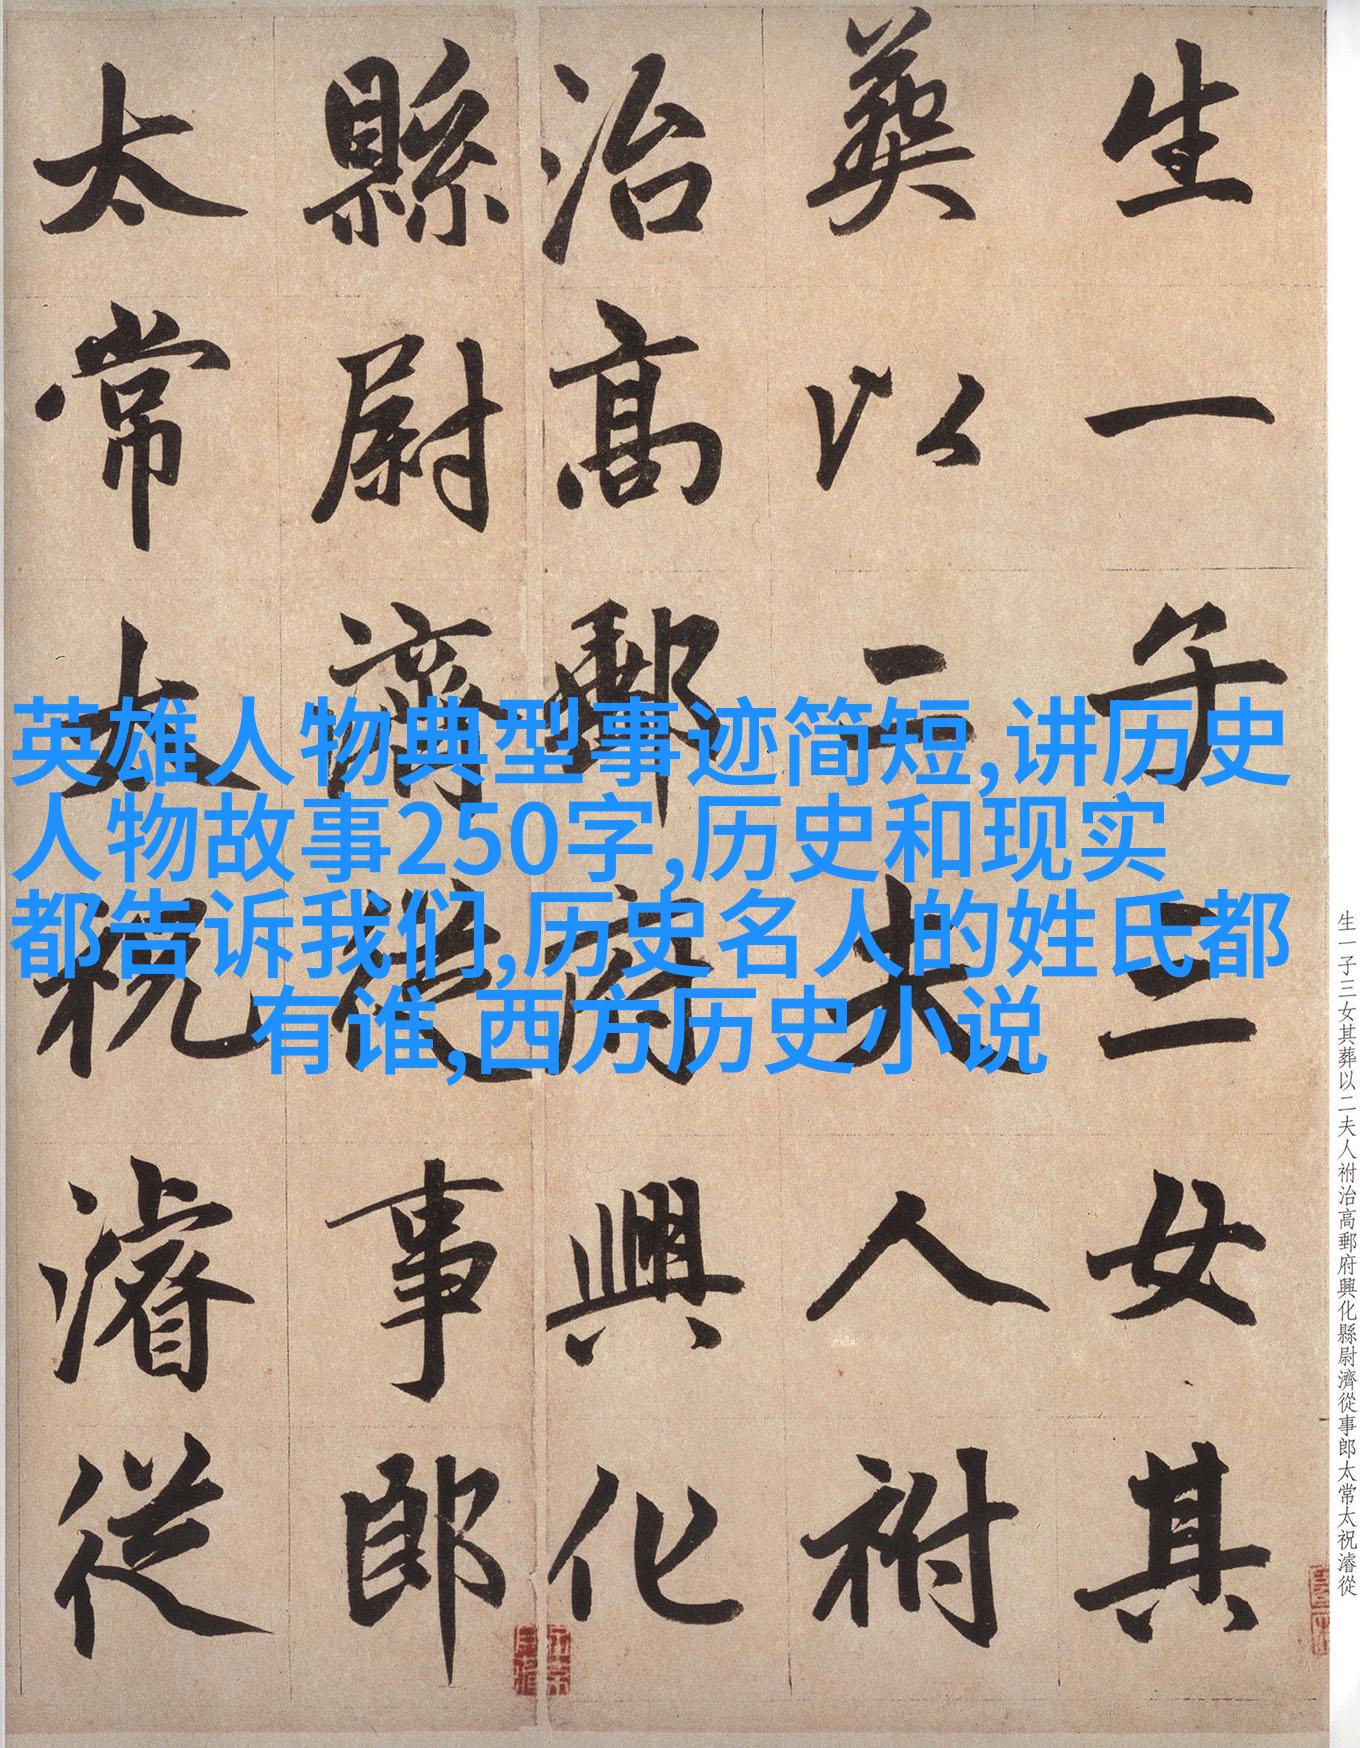 生一子三女其
葬以二夫人祔
治高郵府興化
縣尉濟從事郎
太常太祝濬從
英雄人物典型事迹简短,讲历史
人物故事250字,历史和现实
都告诉我们,历史名人的姓氏都
有谁,西方历史小说
生一子三女其葬以二夫人祔治高郵府興化縣尉濟從事郎太常太祝濬從